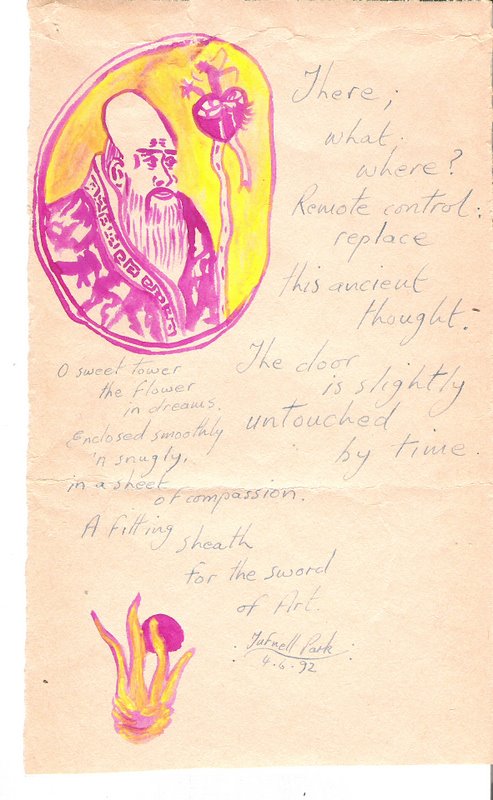 There,
what.
where?
Remote control:
replace
this ancient
thought.
The door
is slightly
untouched
by time.
O sweet tower
the flower
in dreams.
Enclosed smoothly
'n snugly,
in a sheet
of compassion.
A fitting
sheath
for the sword
of Art.
Tufnell Park
4.6.92